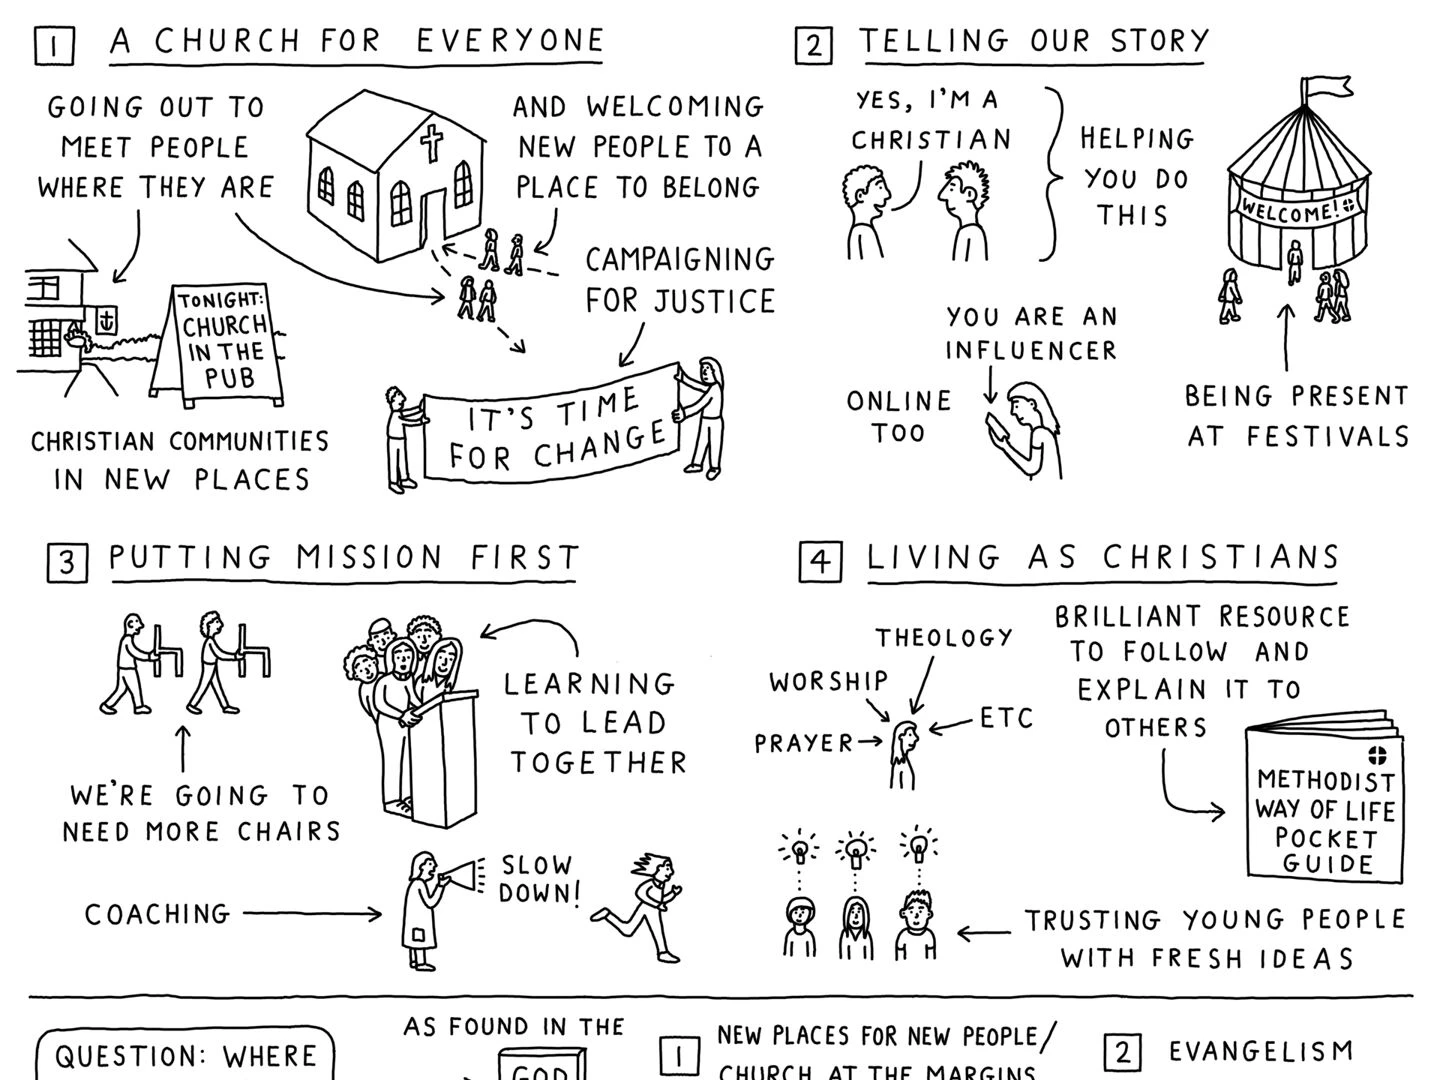 1 A CHURCH FOR EVERYONE
GOING OUT TO
MEET PEOPLE
WHERE THEY ARE
AND WELCOMING
NEW PEOPLE TO A
PLACE TO BELONG
CAMPAIGNING
FOR JUSTICE
TONIGHT:
CHURCH
IN THE
PUB
IT'S TIME
FOR CHANGE
CHRISTIAN COMMUNITIES
IN NEW PLACES
2 TELLING OUR STORY
YES, I'M A
CHRISTIAN
HELPING
YOU DO
THIS
WELCOME!
YOU ARE AN
INFLUENCER
ONLINE
TOO
BEING PRESENT
AT FESTIVALS
3 PUTTING MISSION FIRST
WE'RE GOING TO
NEED MORE CHAIRS
LEARNING
TO LEAD
TOGETHER
COACHING
SLOW
DOWN!
4 LIVING AS CHRISTIANS
THEOLOGY
WORSHIP
PRAYER
ETC
BRILLIANT RESOURCE
TO FOLLOW AND
EXPLAIN IT TO
OTHERS
METHODIST
WAY OF LIFE
POCKET
GUIDE
TRUSTING YOUNG PEOPLE
WITH FRESH IDEAS
QUESTION: WHERE
AS FOUND IN THE
GOD
1 NEW PLACES FOR NEW PEOPLE/
CHURCH AT THE MARGINS
2 EVANGELISM